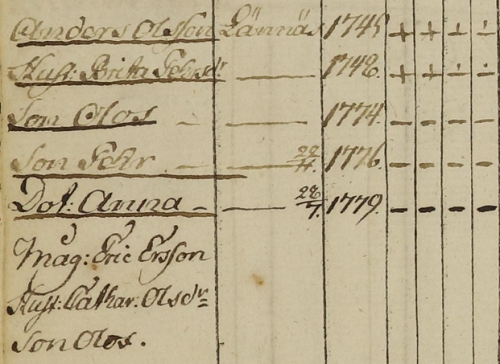 Anders Olsson Lännäs 1745 + + + +
Hust: Brita Pehrsdr — 1748 + + + +
Son Olof - — 1774 - - - -
Son Pehr - — 22/4. 1776 - - - -
Dot: Anna - — 28/7. 1779 - - - -
Mag: Eric Ersson
Hust: Cathar. Olsdr
Son Olof.